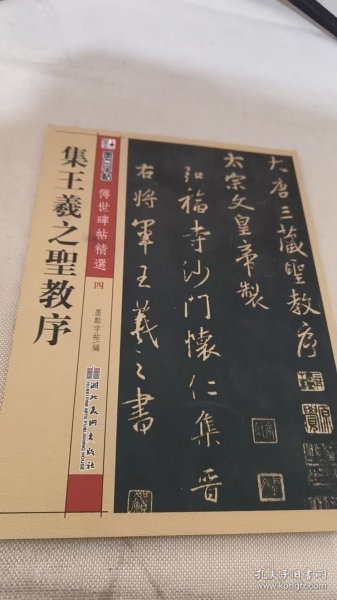 墨点字帖
傳世碑帖精選
四
集王羲之聖教序
墨點字帖 編
湖北美術出版社
HUBEI FINE ARTS PUBLISHING HOUSE
大唐三藏聖教序
太宗文皇帝製
弘福寺沙門懷仁集晉
右將軍王羲之書
孔夫子旧书网
kongfz.com